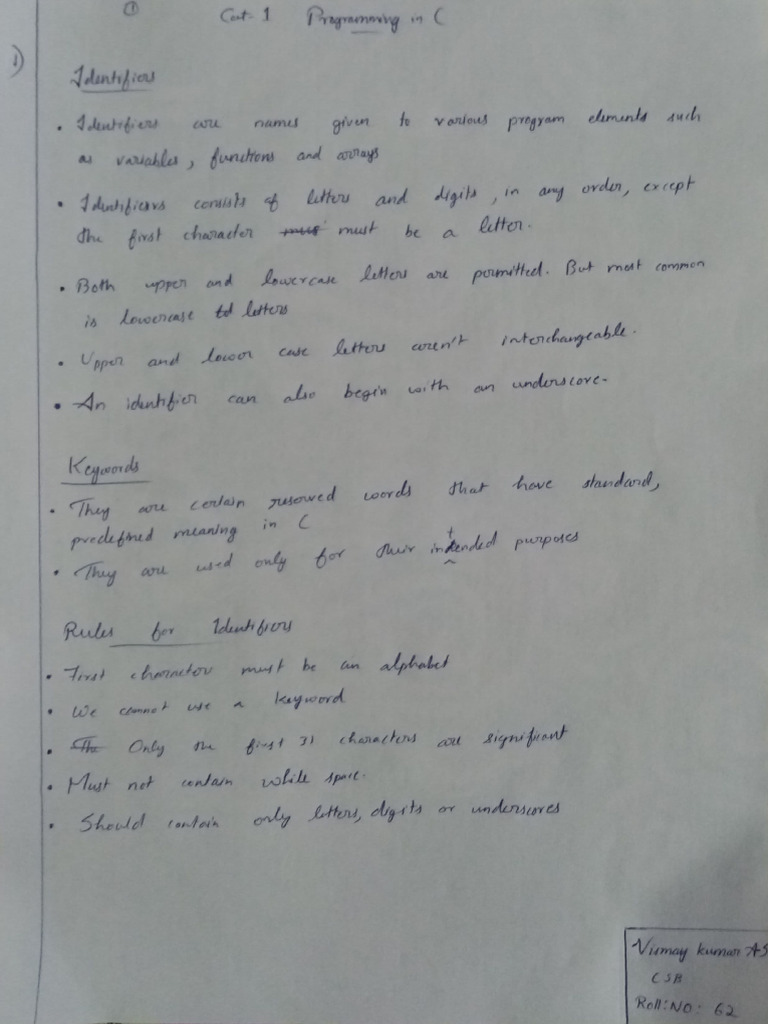 ①
Cat-1 Programming in C
1)
Identifiers
• Identifiers are names given to various program elements such
as variables, functions and arrays
• Identifiers consists of letters and digits, in any order, except
the first character must must be a letter.
• Both upper and lowercase letters are permitted. But most common
is lowercase letters
• Upper and lower case letters aren't interchangeable.
• An identifier can also begin with an underscore.
Keywords
• They are certain reserved words that have standard,
predefined meaning in C
• They are used only for their intended purposes
Rules for Identifiers
• First character must be an alphabet
• We cannot use a keyword
• The Only the first 31 characters are significant
• Must not contain white space.
• Should contain only letters, digits or underscores
kumar AS
CSB
Roll:NO: 62